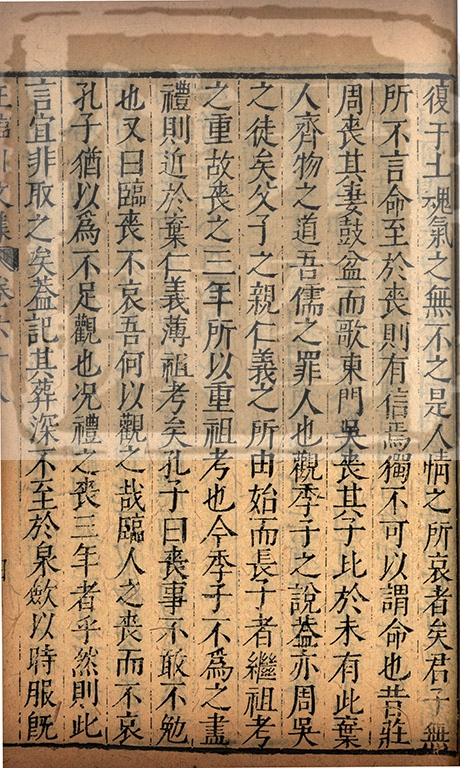 復于土魂氣之無不之是人情之所哀者矣君子無
所不言命至於喪則有信焉獨不可以謂命也昔莊
周喪其妻鼓盆而歌東門吳喪其子比於未有此棄
人齊物之道吾儒之罪人也觀季子之說葢亦周吳
之徒矣父子之親仁義之所由始而長子者繼祖考
之重故喪之三年所以重祖考也今季子不為之盡
禮則近於棄仁義薄祖考矣孔子曰喪事不敢不勉
也又曰臨喪不哀吾何以觀之哉臨人之喪而不哀
孔子猶以為不足觀也况禮之喪三年者乎然則此
言宜非取之矣葢記其葬深不至於泉斂以時服旣
王臨川文集 卷六十八
四